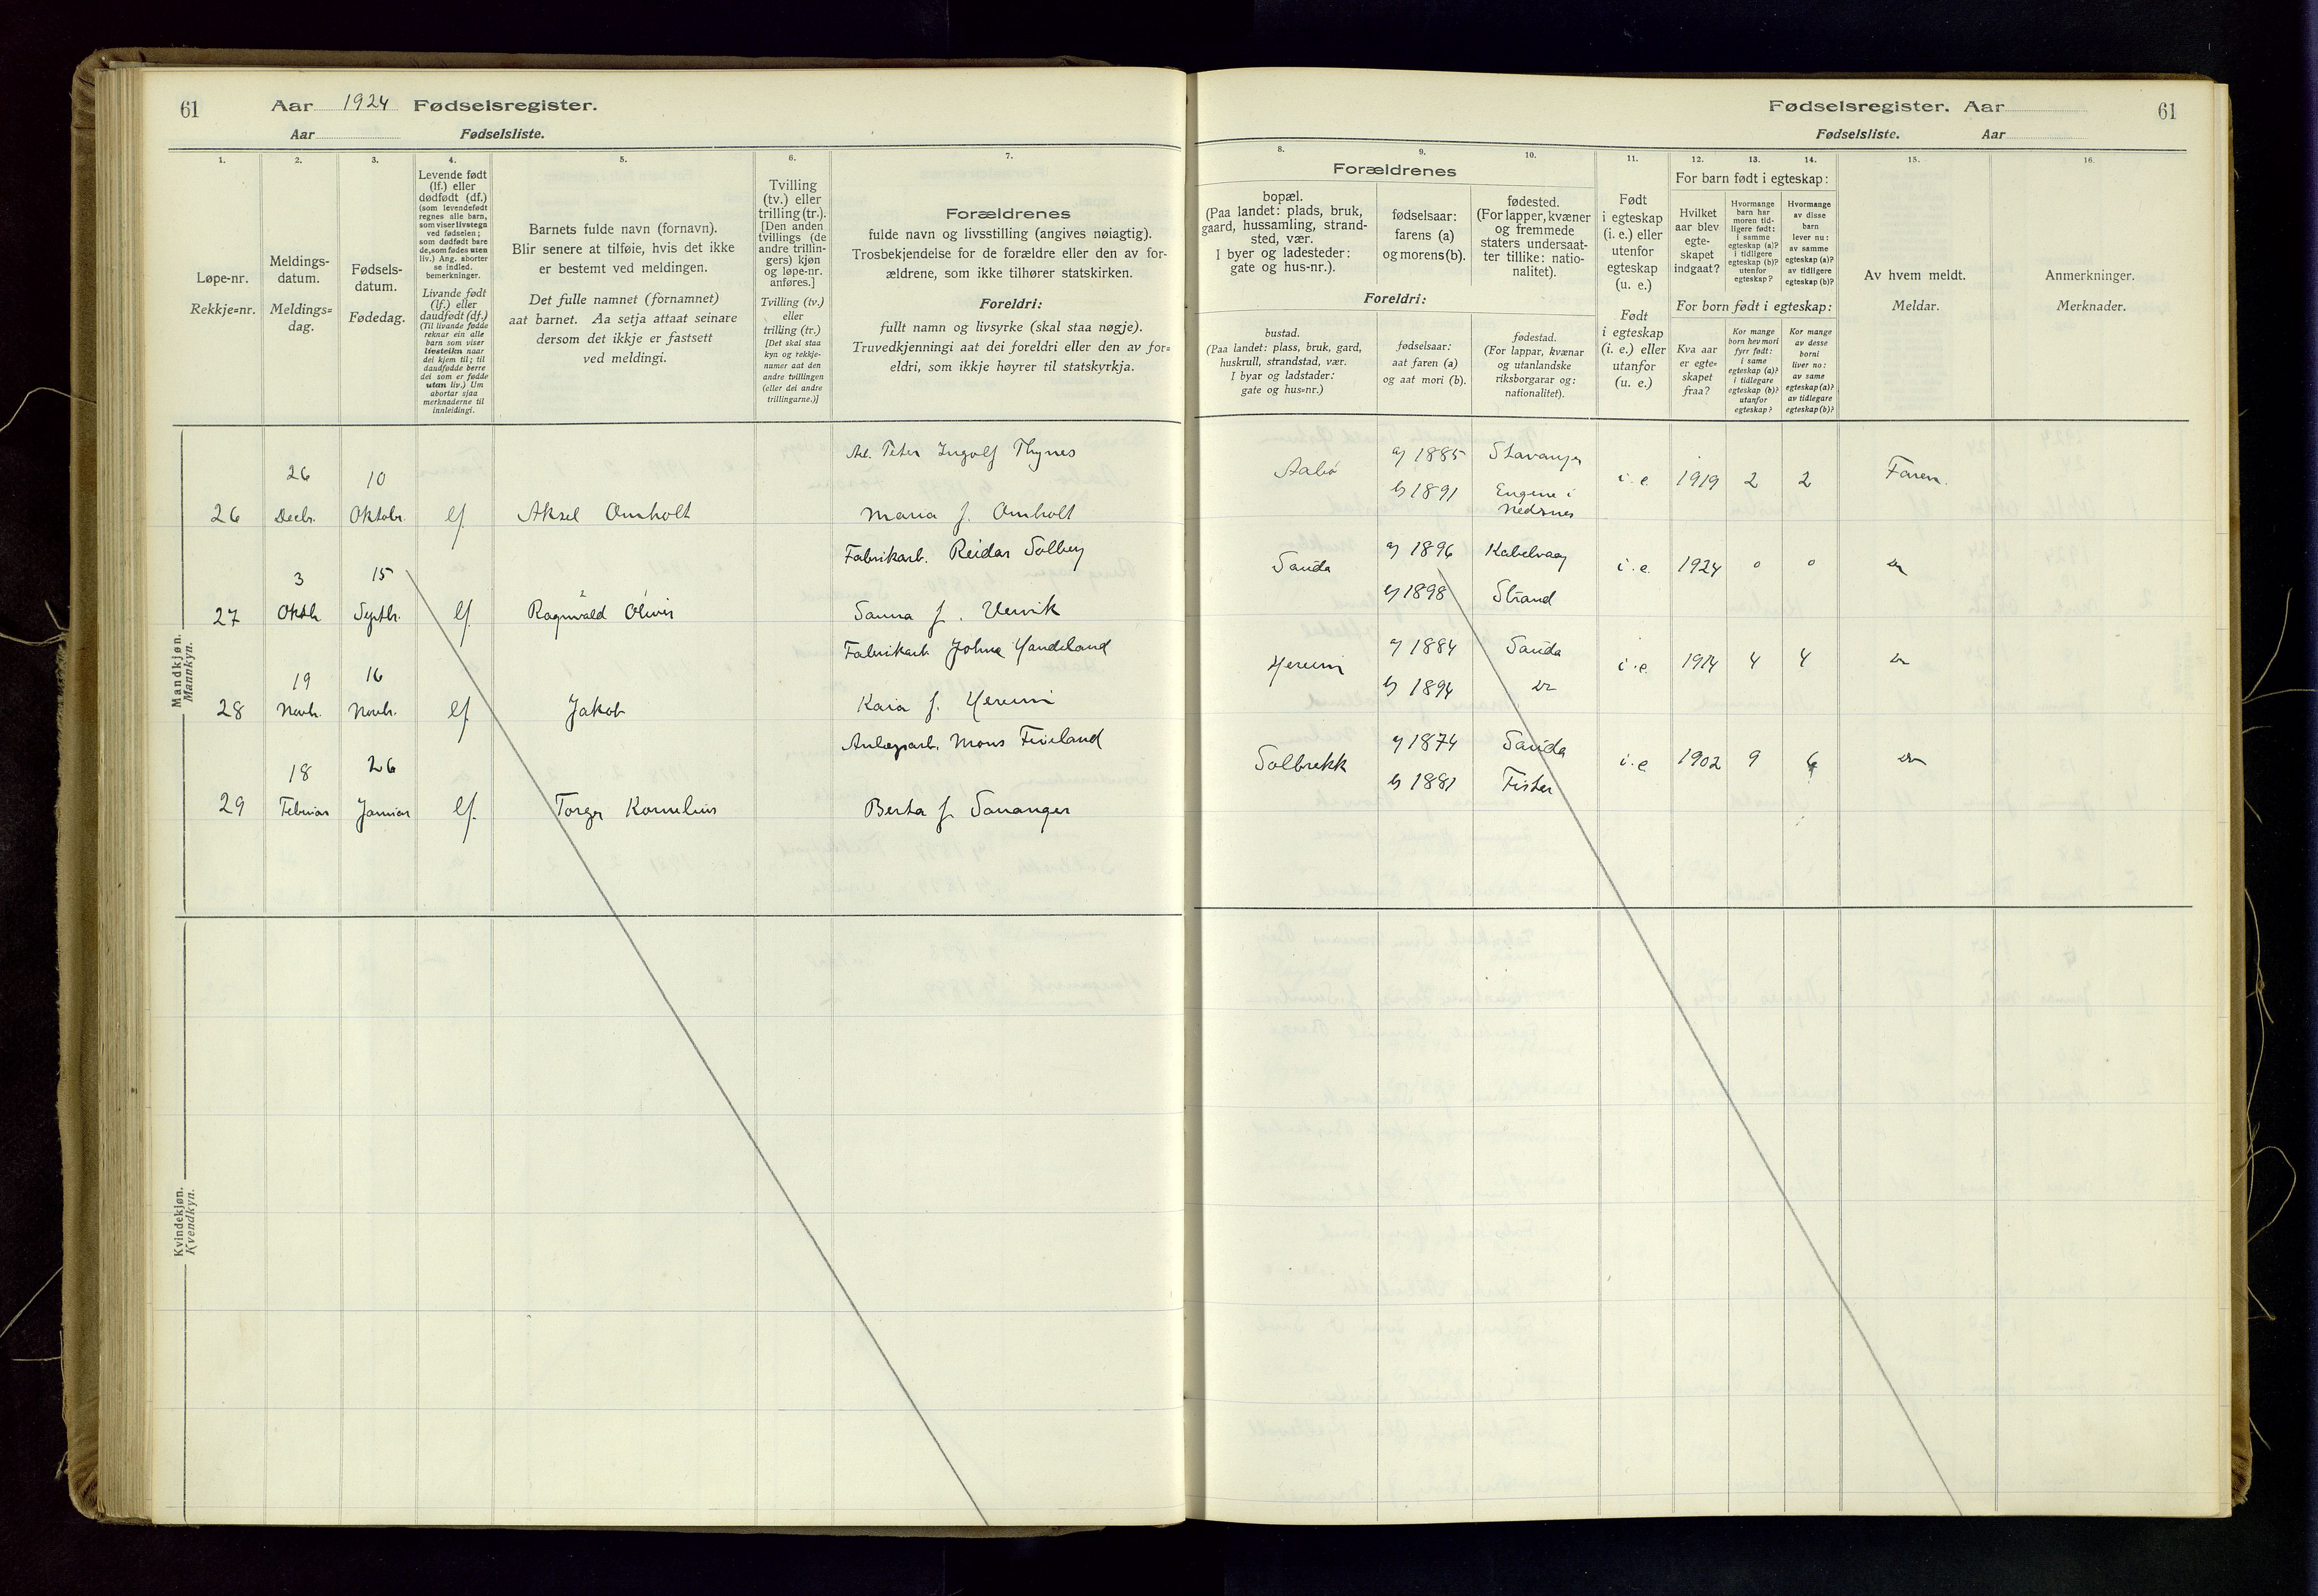 61
Aar 1924 Fødselsregister.
Aar Fødselsliste.
Fødselsregister. Aar
61
Fødselsliste. Aar
1.
2.
3.
4.
5.
6.
7.
8.
9.
10.
11.
12.
13.
14.
15.
16.
Løpe-nr.
Rekkje=nr.
Meldings-
datum.
Meldings=
dag.
Fødsels-
datum.
Fødedag.
Levende født
(lf.) eller
dødfødt (df.)
(som levendefødt
regnes alle barn,
som viser livstegn
ved fødselen;
som dødfødt bare
de, som fødes uten
liv.) Ang. aborter
se indled.
bemerkninger.
Livande født
(lf.) eller
daudfødt (df.)
(Til livande fødde
reknar ein alle
barn som viser
livsteikn naar
dei kjem til; til
daudfødde berre
dei som er fødde
utan liv.) Um
abortar sjaa
merknaderne til
innleidingi.
Barnets fulde navn (fornavn).
Blir senere at tilføie, hvis det ikke
er bestemt ved meldingen.
Det fulle namnet (fornamnet)
aat barnet. Aa setja attaat seinare
dersom det ikkje er fastsett
ved meldingi.
Tvilling
(tv.) eller
trilling (tr.).
[Den anden
tvillings (de
andre trillin-
gers) kjøn
og løpe-nr.
anføres.]
Tvilling (tv.)
eller
trilling (tr.)
[Det skal staa
kyn og rekkje-
numer aat den
andre tvillingen
(eller dei andre
trillingarne.)]
Forældrenes
fulde navn og livsstilling (angives nøiagtig).
Trosbekjendelse for de forældre eller den av for-
ældrene, som ikke tilhører statskirken.
Foreldri:
fullt namn og livsyrke (skal staa nøgje).
Truvedkjenningi aat dei foreldri eller den av for=
eldri, som ikkje høyrer til statskyrkja.
Forældrenes
bopæl.
(Paa landet: plads, bruk,
gaard, hussamling, strand-
sted, vær.
I byer og ladesteder:
gate og hus-nr.).
fødselsaar:
farens (a)
og morens (b).
fødested.
(For lapper, kvæner
og fremmede
staters undersaat-
ter tillike: natio-
nalitet).
Foreldri:
bustad.
(Paa landet: plass, bruk, gard,
huskrull, strandstad, vær.
I byar og ladstader:
gate og hus=nr.)
fødselsaar:
aat faren (a)
og aat mori (b).
fødestad.
(For lappar, kvænar
og utanlandske
riksborgarar og:
nationalitet).
Født
i egteskap
(i. e.) eller
utenfor
egteskap
(u. e.)
Født
i egteskap
(i. e.) eller
utanfor
(u. e.)
For barn født i egteskap:
Hvilket
aar blev
egte-
skapet
indgaat?
Hvormange
barn har
moren tid-
ligere født:
i samme
egteskap (a)?
i tidligere
egteskap (b)?
utenfor
egteskap?
Hvormange
av disse
barn
lever nu:
av samme
egteskap (a)?
av tidligere
egteskap (b)?
For born født i egteskap:
Kva aar
er egte=
skapet
fraa?
Kor mange
born hev mori
fyrr født:
i same
egteskap (a)?
i tidlegare
egteskap (b)?
utanfor
egteskap?
Kor mange
av desse
borni
liver no:
av same
egteskap (a)?
av tidlegare
egteskap (b)?
Av hvem meldt.
Meldar.
Anmerkninger.
Merknader.
Mandkjøn.
Mannkyn.
26
26
Decbr.
10
Oktobr.
lf
Aksel Omholt
Peter Ingolf Thynes
Maria f. Omholt
Aabø
a) 1885
b) 1891
Stavanger
Engene i
Nedenes
i. e.
1919
2
2
Faren.
27
3
Oktbr.
15
Septbr.
lf
Ragnvald Oliver
Fabrikarb. Reidar Solbey
Sanna f. Vervik
Sauda
a) 1896
b) 1898
Kabelvaag
Strand
i. e.
1924
0
0
28
19
Novbr.
16
Novbr.
lf
Jakob
Fabrikarb. Johne Handeland
Kaia f. Hereim
Hereim
a) 1884
b) 1894
Sauda
i. e.
1914
4
4
29
18
Februar
26
Januar
lf.
Torger Kornelius
Anlægsarb. Mons Fiveland
Berta f. Sauanger
Solbrekk
a) 1874
b) 1881
Sauda
Fister
i. e.
1902
9
6
Kvindekjøn.
Kvendkyn.